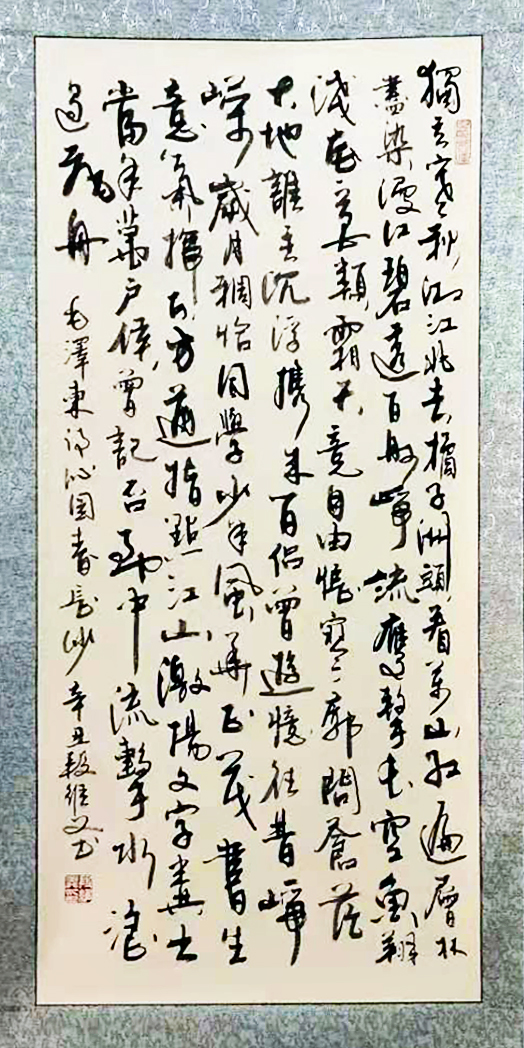 獨立寒秋湘江北去橘子洲頭看萬山紅遍層林
盡染漫江碧透百舸崢流鷹擊長空魚翔
淺底萬類霜天競自由悵寥廓問蒼茫
大地誰主沉浮攜來百侶曾遊憶往昔崢
嶸歲月稠恰同學少年風華正茂書生
意氣揮斥方遒指點江山激揚文字糞土
當年萬戶侯曾記否到中流擊水浪
遏飛舟
毛澤東詞沁園春長沙辛丑維書